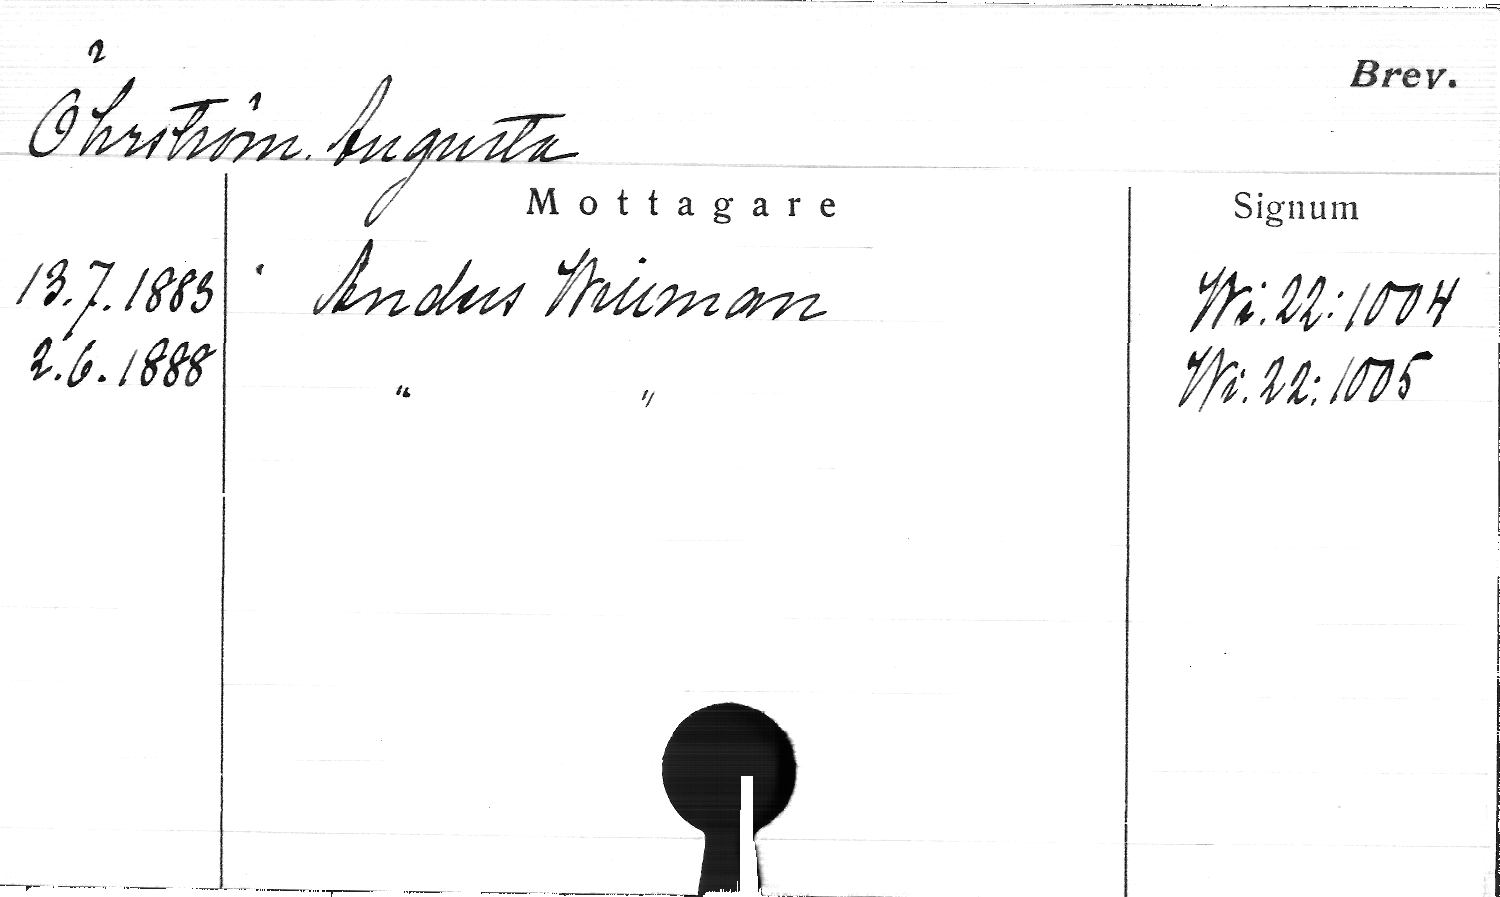 Brev.
Öhrström. Augusta
Mottagare Signum
13.7.1883 Anders Wiman Wi.22:1004
2.6.1888 " " Wi.22:1005